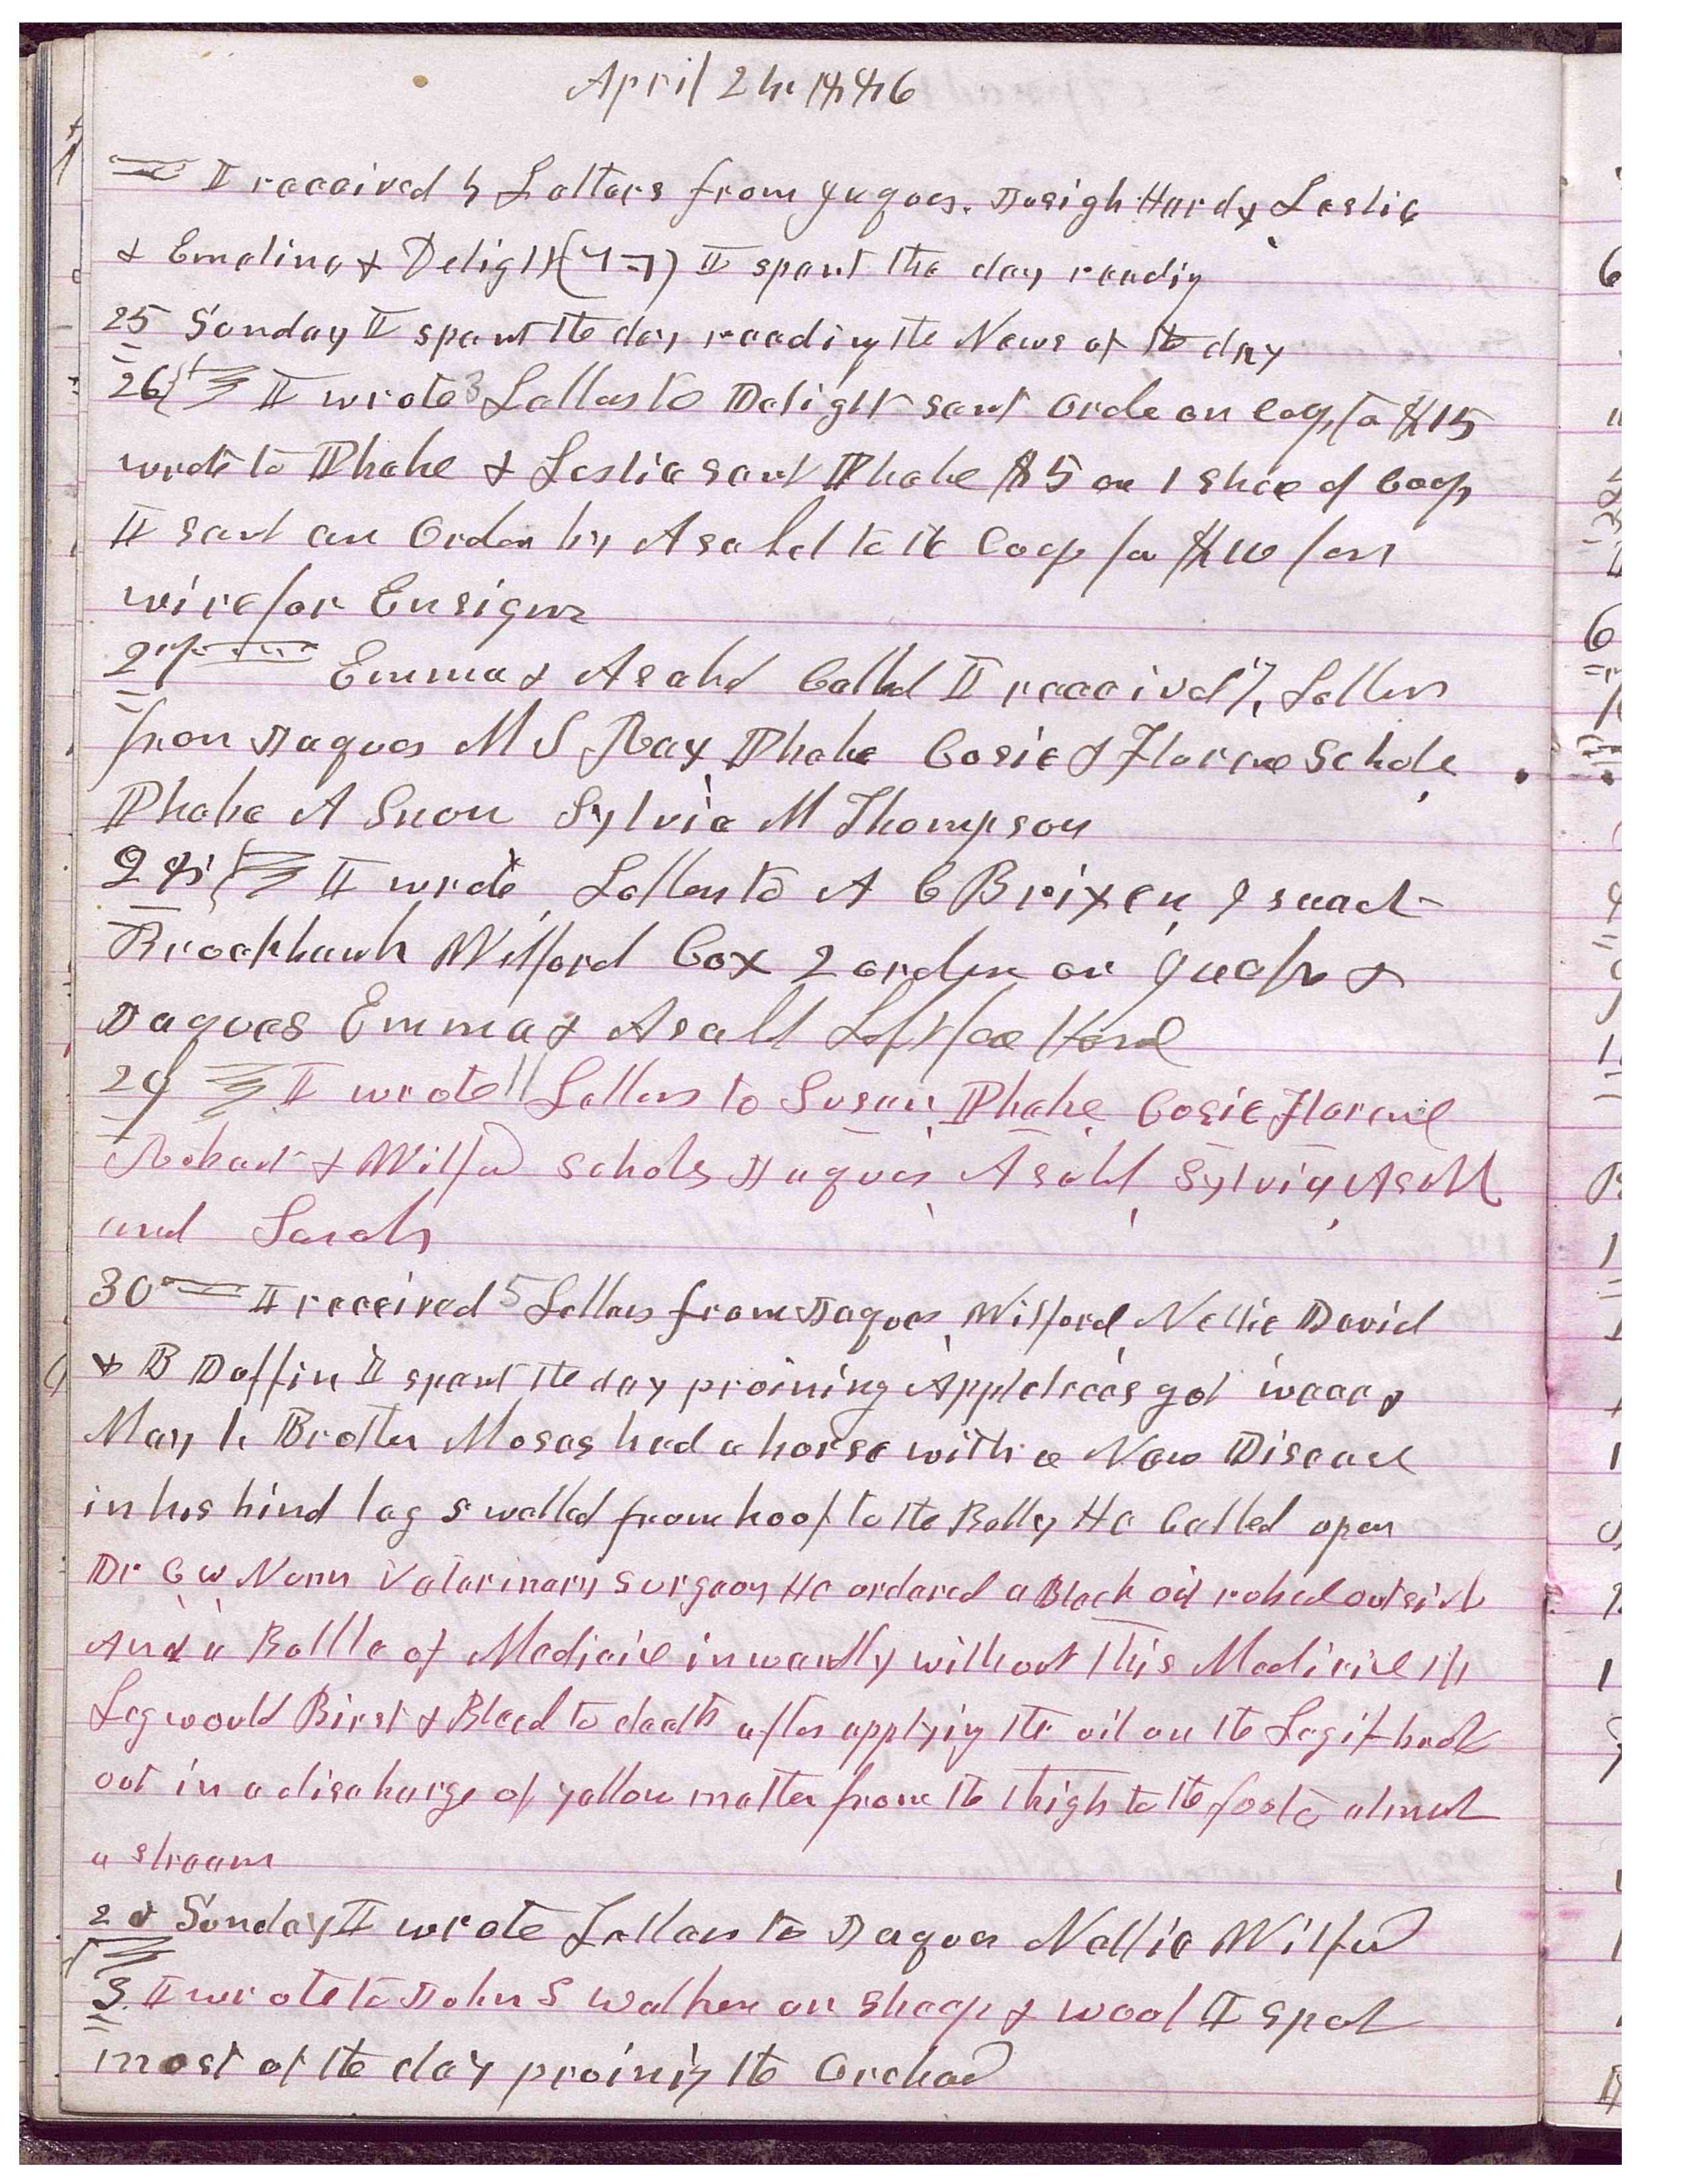 April 24 1886
I received 4 Letters from Jaques. Joseigh Hardy Leslie
& Emeline & Delight I spent the day readig
25 Sunday I spent the day reading the News of the day
26 I wrote 3 Letters to Delight sent orde on Coop fo $15
wrote to Phebe & Leslie sent Phebe $5 on 1 Shee of Coop
I sent an Order by Asahel to the Coop for $10 for
wire for Ensign
27 Emma & Asahel Called I received 7 Letters
from Jaques M S Ray Phebe Cosie & Florence Schole
Phebe A Snow Sylvia M Thompson
28 I wrote Letters to A C Brixen
Brockbank Wilford Cox 2 orders on &
Jaques Emma & Asahel Left for Home
29 I wrote 11 Letters to Susan Phebe Cosie Florence
Robert & Wilford Scholes Jaques Asahel Sylvia Asahel
and Sarah
30 I received 5 Letters from Jaques Wilford Nellie David
& B Daffin I spent the day proining Appletrees got weary
May 1. Brother Moses had a horse with a New Disease
in his hind leg swelled from hoof to the Belly He Called upon
Dr C W Nunn Vetarinary Surgeon He ordered a Black oil robed outside
And a Bottle of Medicine inwardly without this Medicine the
Leg would Birst & Bleed to death after applying the oil on the Leg it brok
out in a discharge of yellow matter from the thigh to the foot almost
a stream
2d Sunday I wrote Letters to Jaques Nellie Wilford
3. I wrote to John S Walker on Sheep & wool I spent
most of the day proinig the Orchard